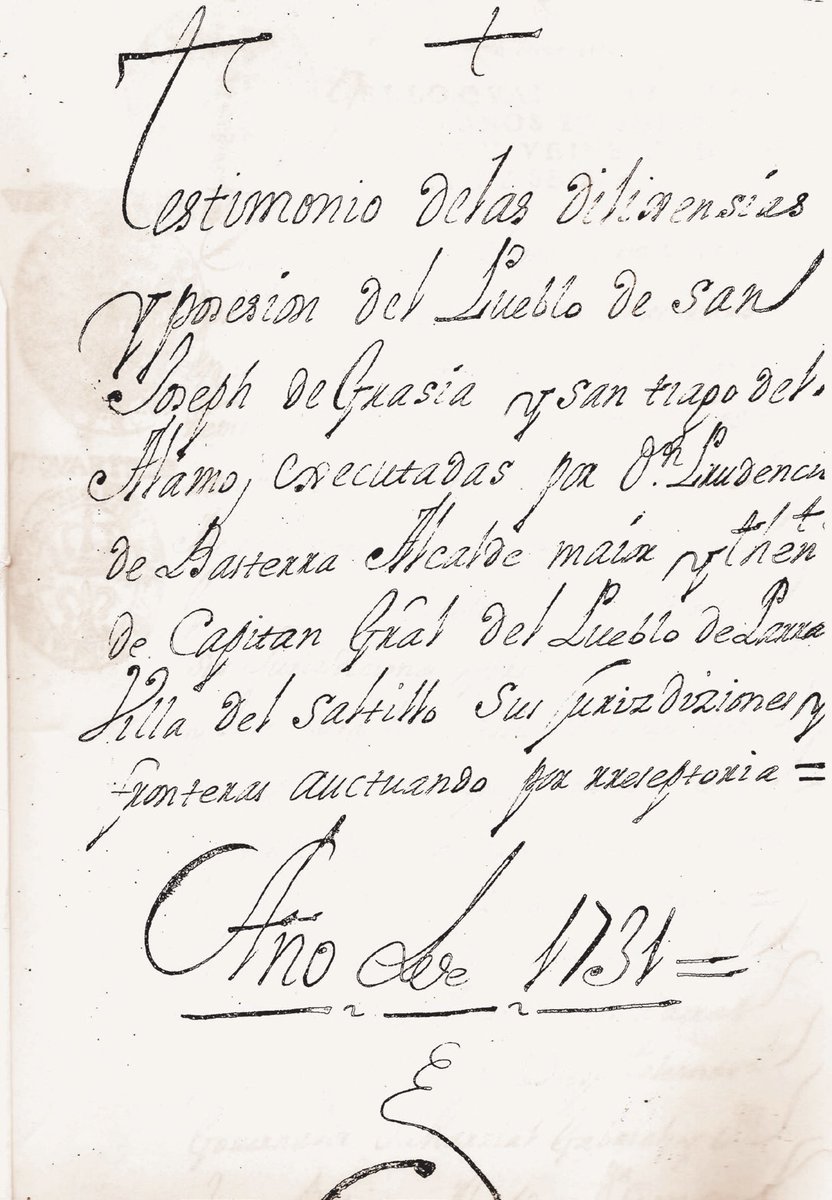 Testimonio delas dilixensias
Y posesion del Pueblo de San
Joseph de Grasia y san tiago del
Alamo, executadas por Dn. Prudencio
de Basterra Alcalde maior y thente
de Capitan Gral del Pueblo de Parras
Villa del saltillo sus Jurizdiziones y
fronteras auctuando por rreseptoria =
Año de 1731 =